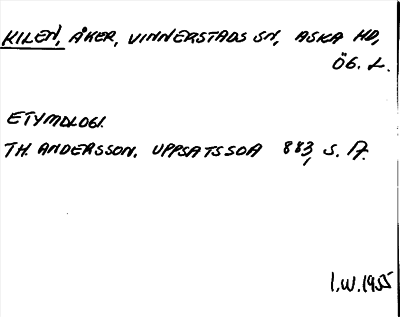 KILEN, ÅKER, VINNERSTADS SN, ASKA HD,
ÖG. L.
ETYMOLOGI.
TH. ANDERSSON. UPPSATSSOA 883, S. 17.
I.W. 1955